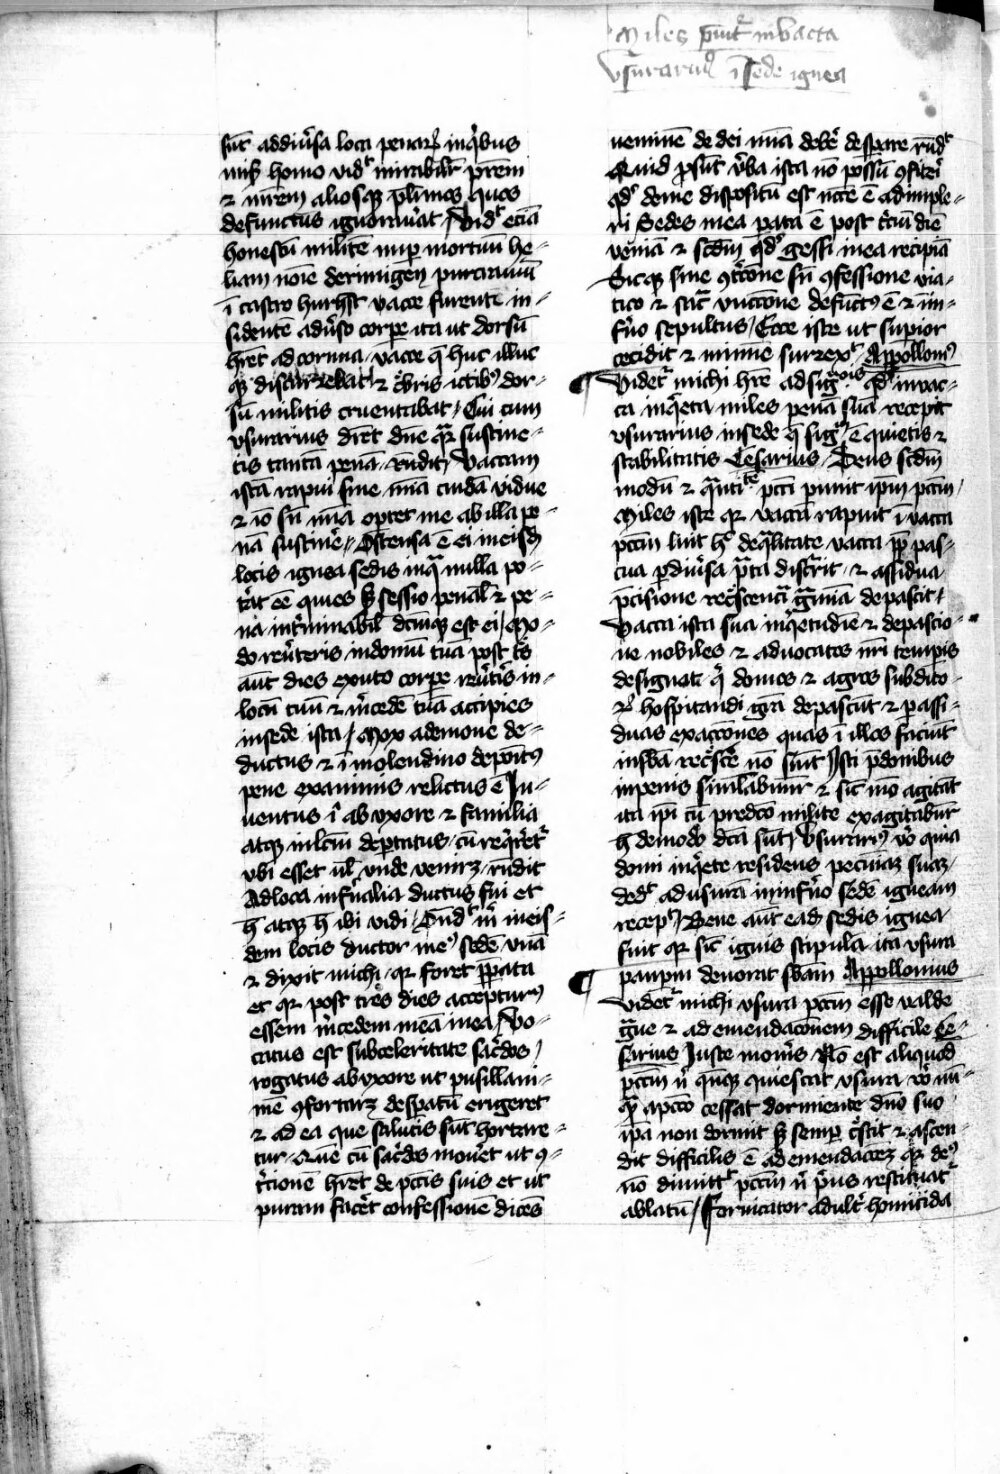 Miles punit᷑ in vacca
vsurariꝰ ī sede ignea
sūt addiu̓sa loca penaꝝ inqͥbus
miẜ homo vidᷣ mirabilit᷑ prēm
⁊ mr̄em aliosqꝫ plͥmos quos
defunctus ignorau̓at / Vidᷣ eciā
honestū militē nup̲ mortuū he⸗
liam noīe derinnigen purcrauiū
ī castro hurhst vacce furenti in⸗
sidentē adu̓so corꝑe ita ut dorsū
hr̄et ad cornua / vacce q̄ huc illuc
qꝫ discurrebat ⁊ cͤbris ictibꝰ dor⸗
sū militis cruentabat / Cui cum
vsurarius dic̄et dn̄e qͣr̄ sustine⸗
tis tantā penā / rn̄dit / Vaccam
istā rapui sine mīa cuidā vidue
⁊ iō sn̄ mīa oꝑtet me ab illa pe⸗
nā sustine᷑ / Ostensa ē ei in eisdꝫ
locis ignea sedis inqͣ nulla po⸗
t̓at eē quies sꝫ sessio penal̓ ⁊ pe⸗
na int̓minabil̓ dc̄mqꝫ est ei / Mo⸗
do reu̓teris in domū tuā post tͤs
aūt dies exuto corꝑe reu̓t̓is in
locū tuū ⁊ m̓cedē tuā accipies
in sede ista / Mox ademone de⸗
ductus ⁊ ī molendino depositꝰ
pene exanimis relictus ē In⸗
uentus ī ab vxore ⁊ familia
atqꝫ in lc̄m deportatus / cū reqͥret᷑
vbi esset ul̓ vnde veniret / rn̄dit
Ad loca infernalia ductus fui et
h̄ atqꝫ h̄ ibi vidi / Ond̓ᷣ m̓ in eis⸗
dem locis ductor meꝰ sedē vnā
⁊ dixit michi / qꝛ foret p̄ꝑata
et qꝛ post tres dies accepturꝰ
essem m̓cedem meā in ea / Vo⸗
catus est sub celeritate sac̓dos /
rogatus ab vxore ut pusillani⸗
mē ꝯfortaret desꝑatū erigeret
⁊ ad ea que salutis sūt hortare⸗
tur / Quē cū sac̓dos mone᷑t ut ꝯ⸗
tricionē hr̄et de pctīs suis et ut
puram face᷑t confessionē dicēs
neminē de dei mīa debe᷑ desꝑare rn̄dᷣ
Quid ꝓsūt v̓ba ista nō possū ꝯfite᷑ri
qd̓ de me dispositū est nc̄ce ē adimple⸗
ri / Sedes mea pata ē post t̓ciū diē
veniā ⁊ scd̄m qd̓ gessi in ea recipiā
Sicqꝫ sine ꝯt̓cōne sn̄ ꝯfessione via⸗
tico ⁊ sac̓ vnccōne defunctꝰ ē ⁊ in in⸗
fn̓o sepultus / Ecce iste ut supior
cecidit ⁊ minime surrexᷣ / Appollonꝰ
Videt᷑ michi hr̄e ad significaꝰ qd̓ in vac⸗
ca inqͥeta miles penā suā recepit
vsurarius in sede q̄ sigͣ ē quietis ⁊
stabilitatis Cesarius / Deus scd̄m
modū ⁊ qͣntitᵗᵉ pctī punit ip̄m pctm̄ /
Miles iste qꝛ vaccā rapuit ī vacca
pctm̄ luit h̓ de qͣlitate vacca pp̄ pas⸗
cua ꝑ diu̓sa prata discurrit ⁊ assidua
p̄cisione rec̓scencia gͣmīa depascit /
Vacca ista sua inqͥetudīe ⁊ depascio⸗
ne nobiles ⁊ aduocatos nr̄i temp̲is
designat qͥ domos ⁊ agros subdito⸗
ꝝ hospitandi gr̄a depascūt ⁊ ꝑ assi⸗
duas exaccōnes quas ī illos faciūt
in sb̄a rec̓sce᷑ nō sūnt Isti p̄donibus
in penis similabunt᷑ ⁊ sic̄ mō agitāt
ita ip̄i cū predc̄o milite exagitabūt᷑
h̄ demodo dc̄a sūt / Vsurariꝰ vō quia
domi inqͥete residens pecuniaꝫ suaꝫ
dedᷣ ad usurā in infn̓o sedē igneam
recepᷣ / Bene aūt ead̓ sedis ignea
fuit qꝛ sic̄ ignis stipulā ita vsura
paupm̄ deuorat sb̄am Appollonius
Videt᷑ michi vsura pctm̄ esse valde
gͣue ⁊ ad emendacōnem difficile Ce⸗
sarius Iuste mones Nō est aliquod
pctm̄ n̓ qn̄qꝫ quiescat vsura vō nū⸗
qͣ a pctō cessat dormiente dn̄o suo
ip̄a non dormit sꝫ semp̲ c̓scit ⁊ ascen⸗
dit difficilis ē ad emendacōeꝫ qͣꝛ deꝰ
nō dimitt᷑ pctm̄ n̓ pͥus restituat᷑
ablatū / Fornicator adult̓ homicida